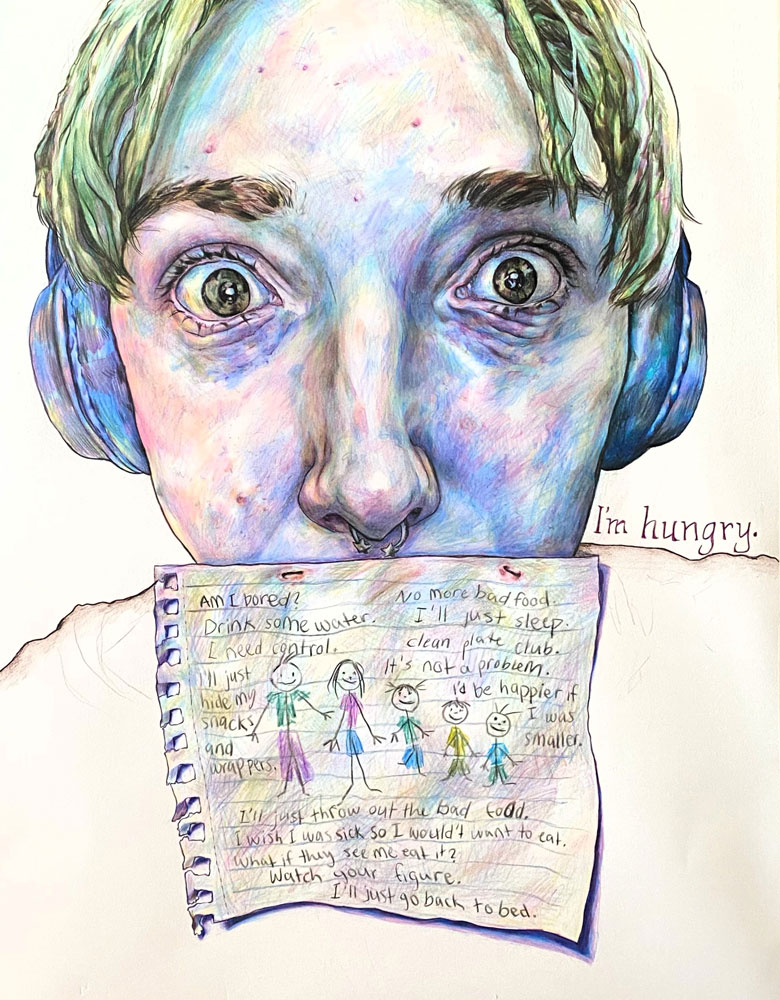 I'm hungry.
Am I bored?
Drink some water.
I need control.
I'll just
hide my
snacks
and
wrappers.
No more bad food.
I'll just sleep.
clean plate club.
It's not a problem.
I'd be happier if
I was
smaller.
I'll just throw out the bad food.
I wish I was sick so I wouldn't want to eat.
What if they see me eat it?
Watch your figure.
I'll just go back to bed.